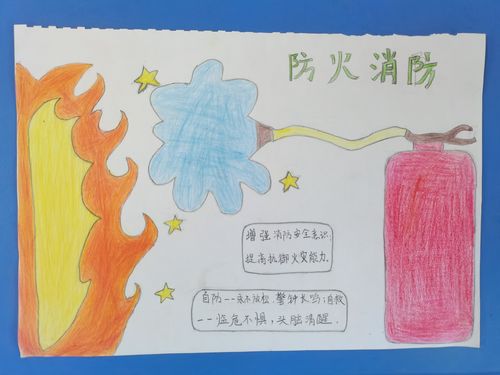 防火消防
增强消防安全意识,
提高抗御火灾能力.
自防--永不放松,警钟长鸣;自救
--临危不惧,头脑清醒.